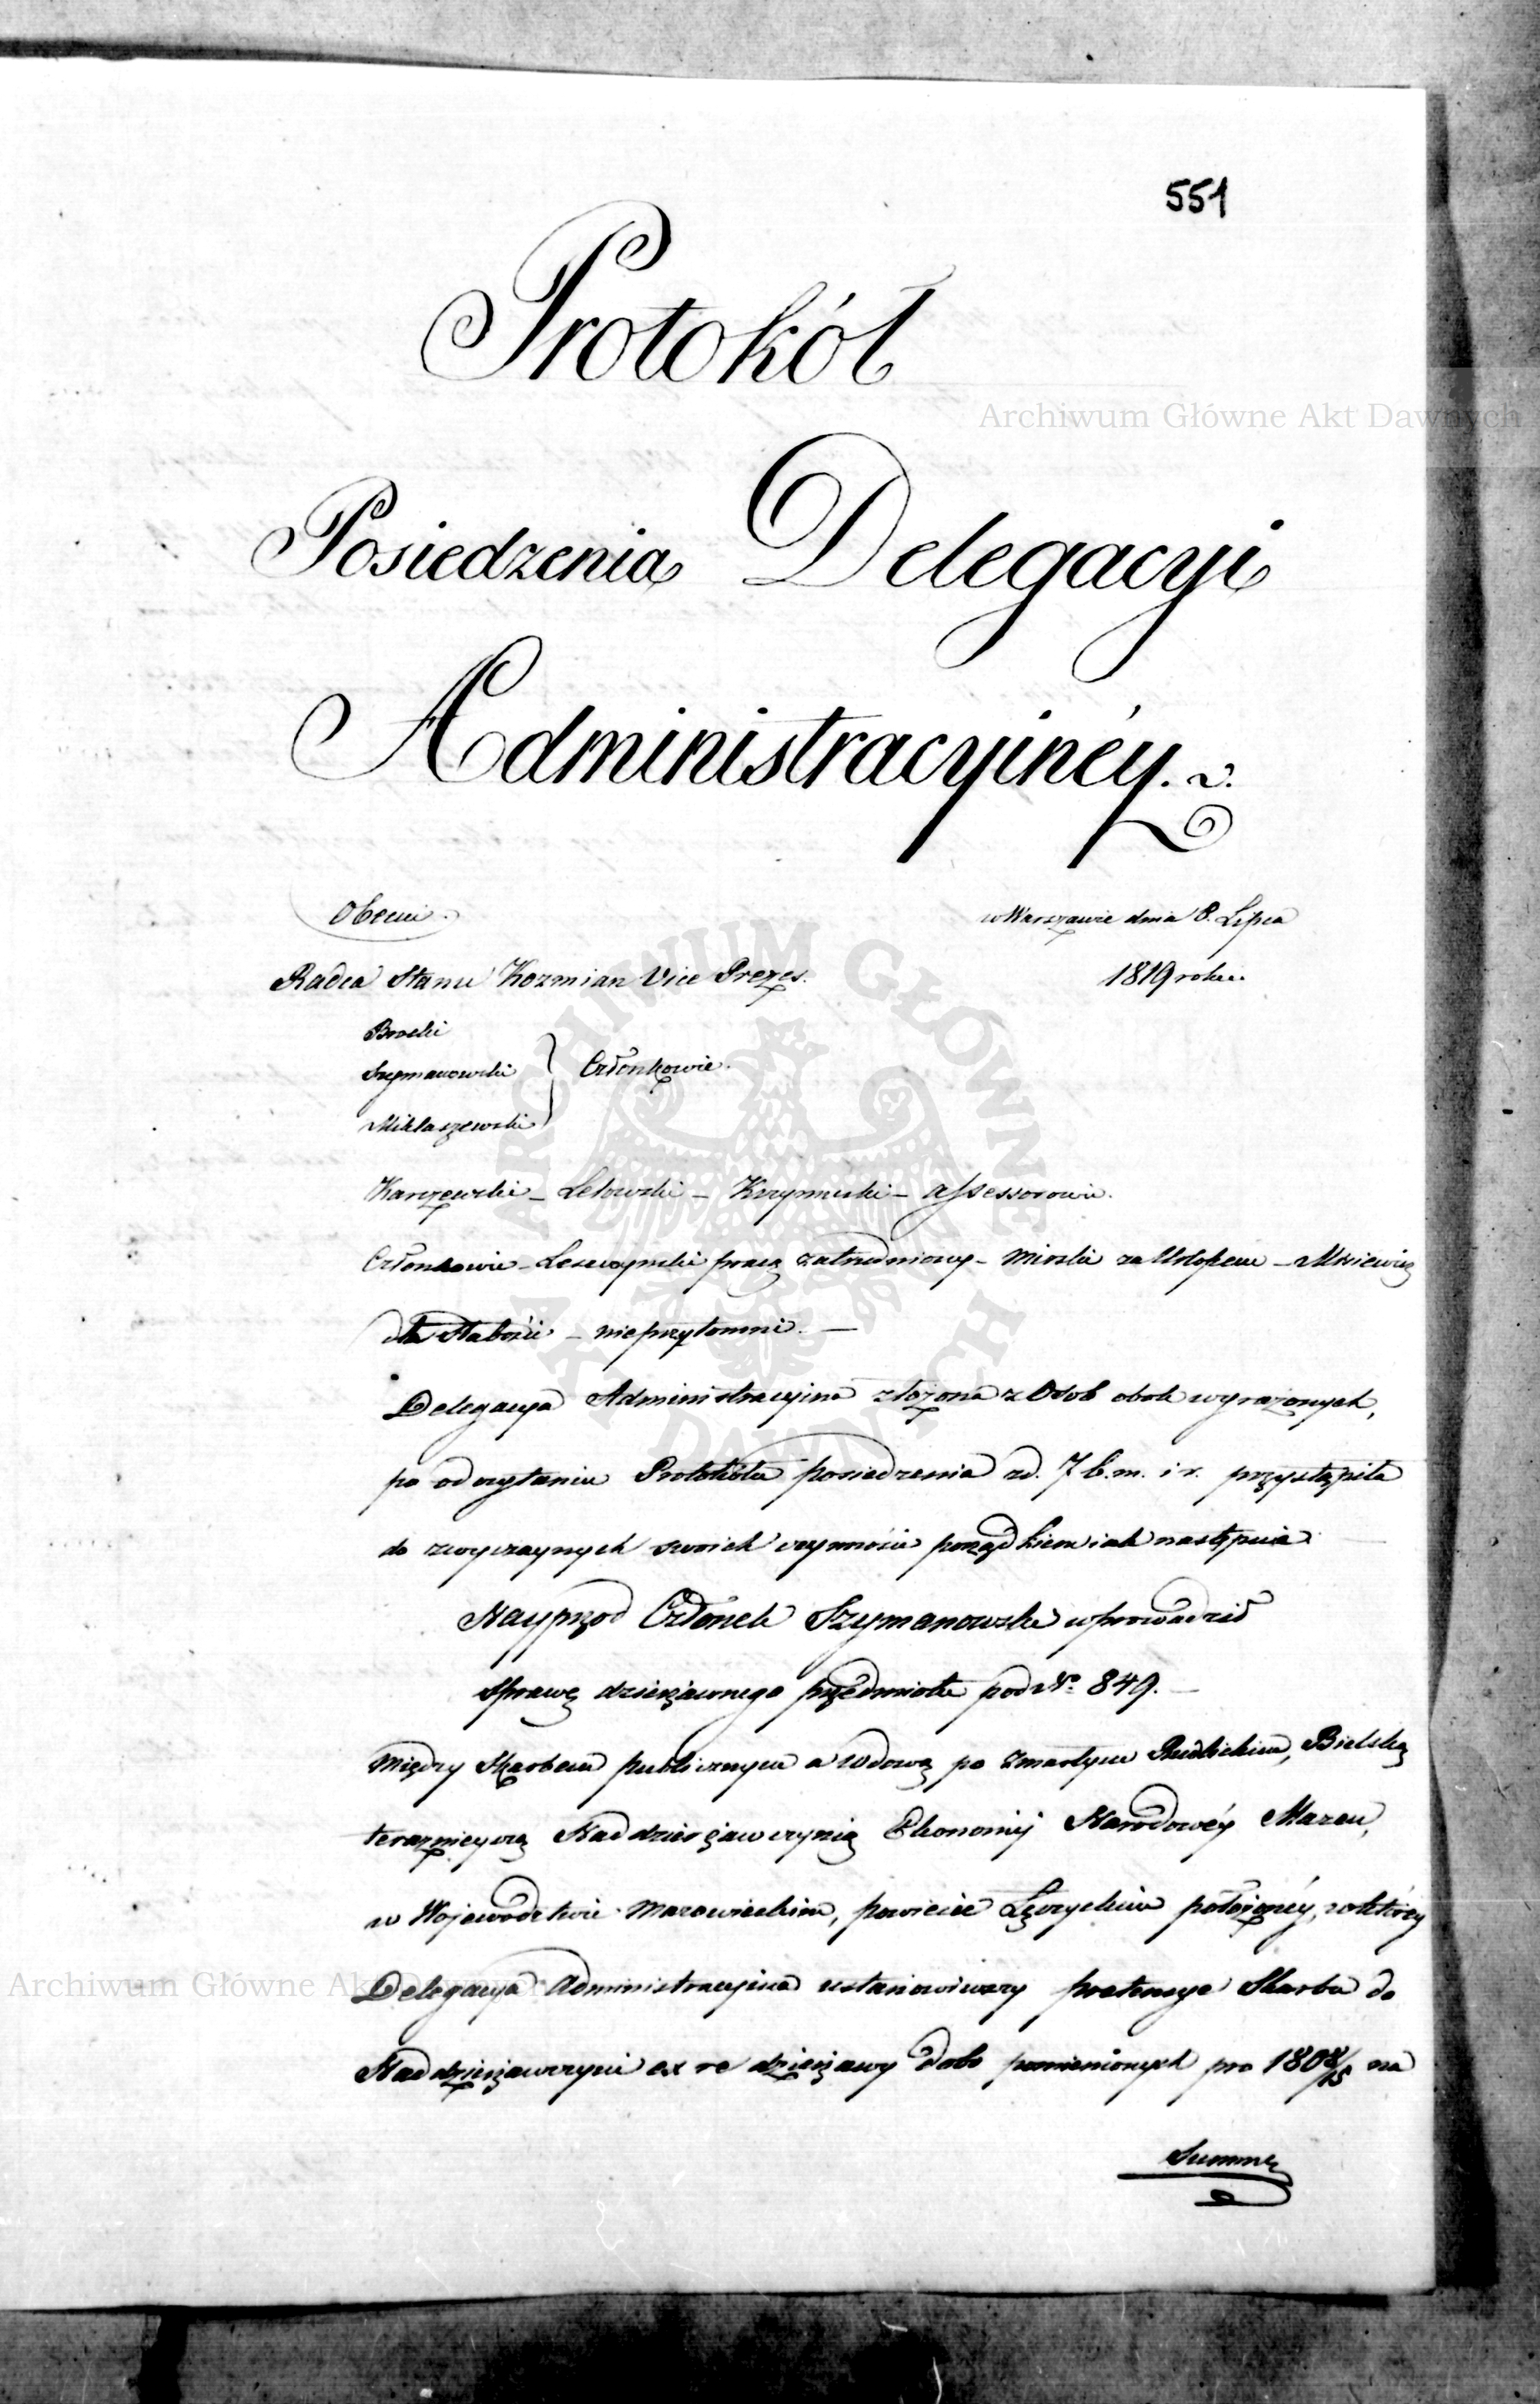 551
Protokół
Posiedzenia Delegacyi
Administracyinéy.
Obecni.
w Warszawie dnia 8. Lipca
Radca Stanu Kozmian Vice Prezes.
1819 roku.
Brocki
Szymanowski
Członkowie.
Miklaszewski
Karczewski – Letowski – Krzymuski – Assessorowie.
Członkowie – pracą zatrudniony – za Urlopem –
dla słabości – nieprzytomni. —
Delegacya Administracyina złożona z Osob obok wyrażonych,
po odczytaniu Protokółu posiedzenia zd. 7 b. m. i r. przystąpiła
do zwyczaynych swoich czynności porządkiem iak następuie
Nayprzod Członek Szymanowski wprowadził
Sprawę dzierżawnego przedmiotu pod Nº 849. —
Między Skarbem publicznym a Wdową po zmarłym Bielską
teraznieyszą Naddzierżawczynią Ekonomij Narodowéy Mazew,
w Wojewodztwie Mazowieckim, powiecie Łęczyckim położonéy, w któréy
Delegacya Administracyina ustanowiwszy pretensye Skarbu do
Naddzierżawczyni ex re dzierżawy dobr pomienionych pro 1808/15 na
Summę
Archiwum Główne Akt Dawnych
ARCHIWUM GŁÓWNE AKT DAWNYCH
Archiwum Główne Akt Dawnych